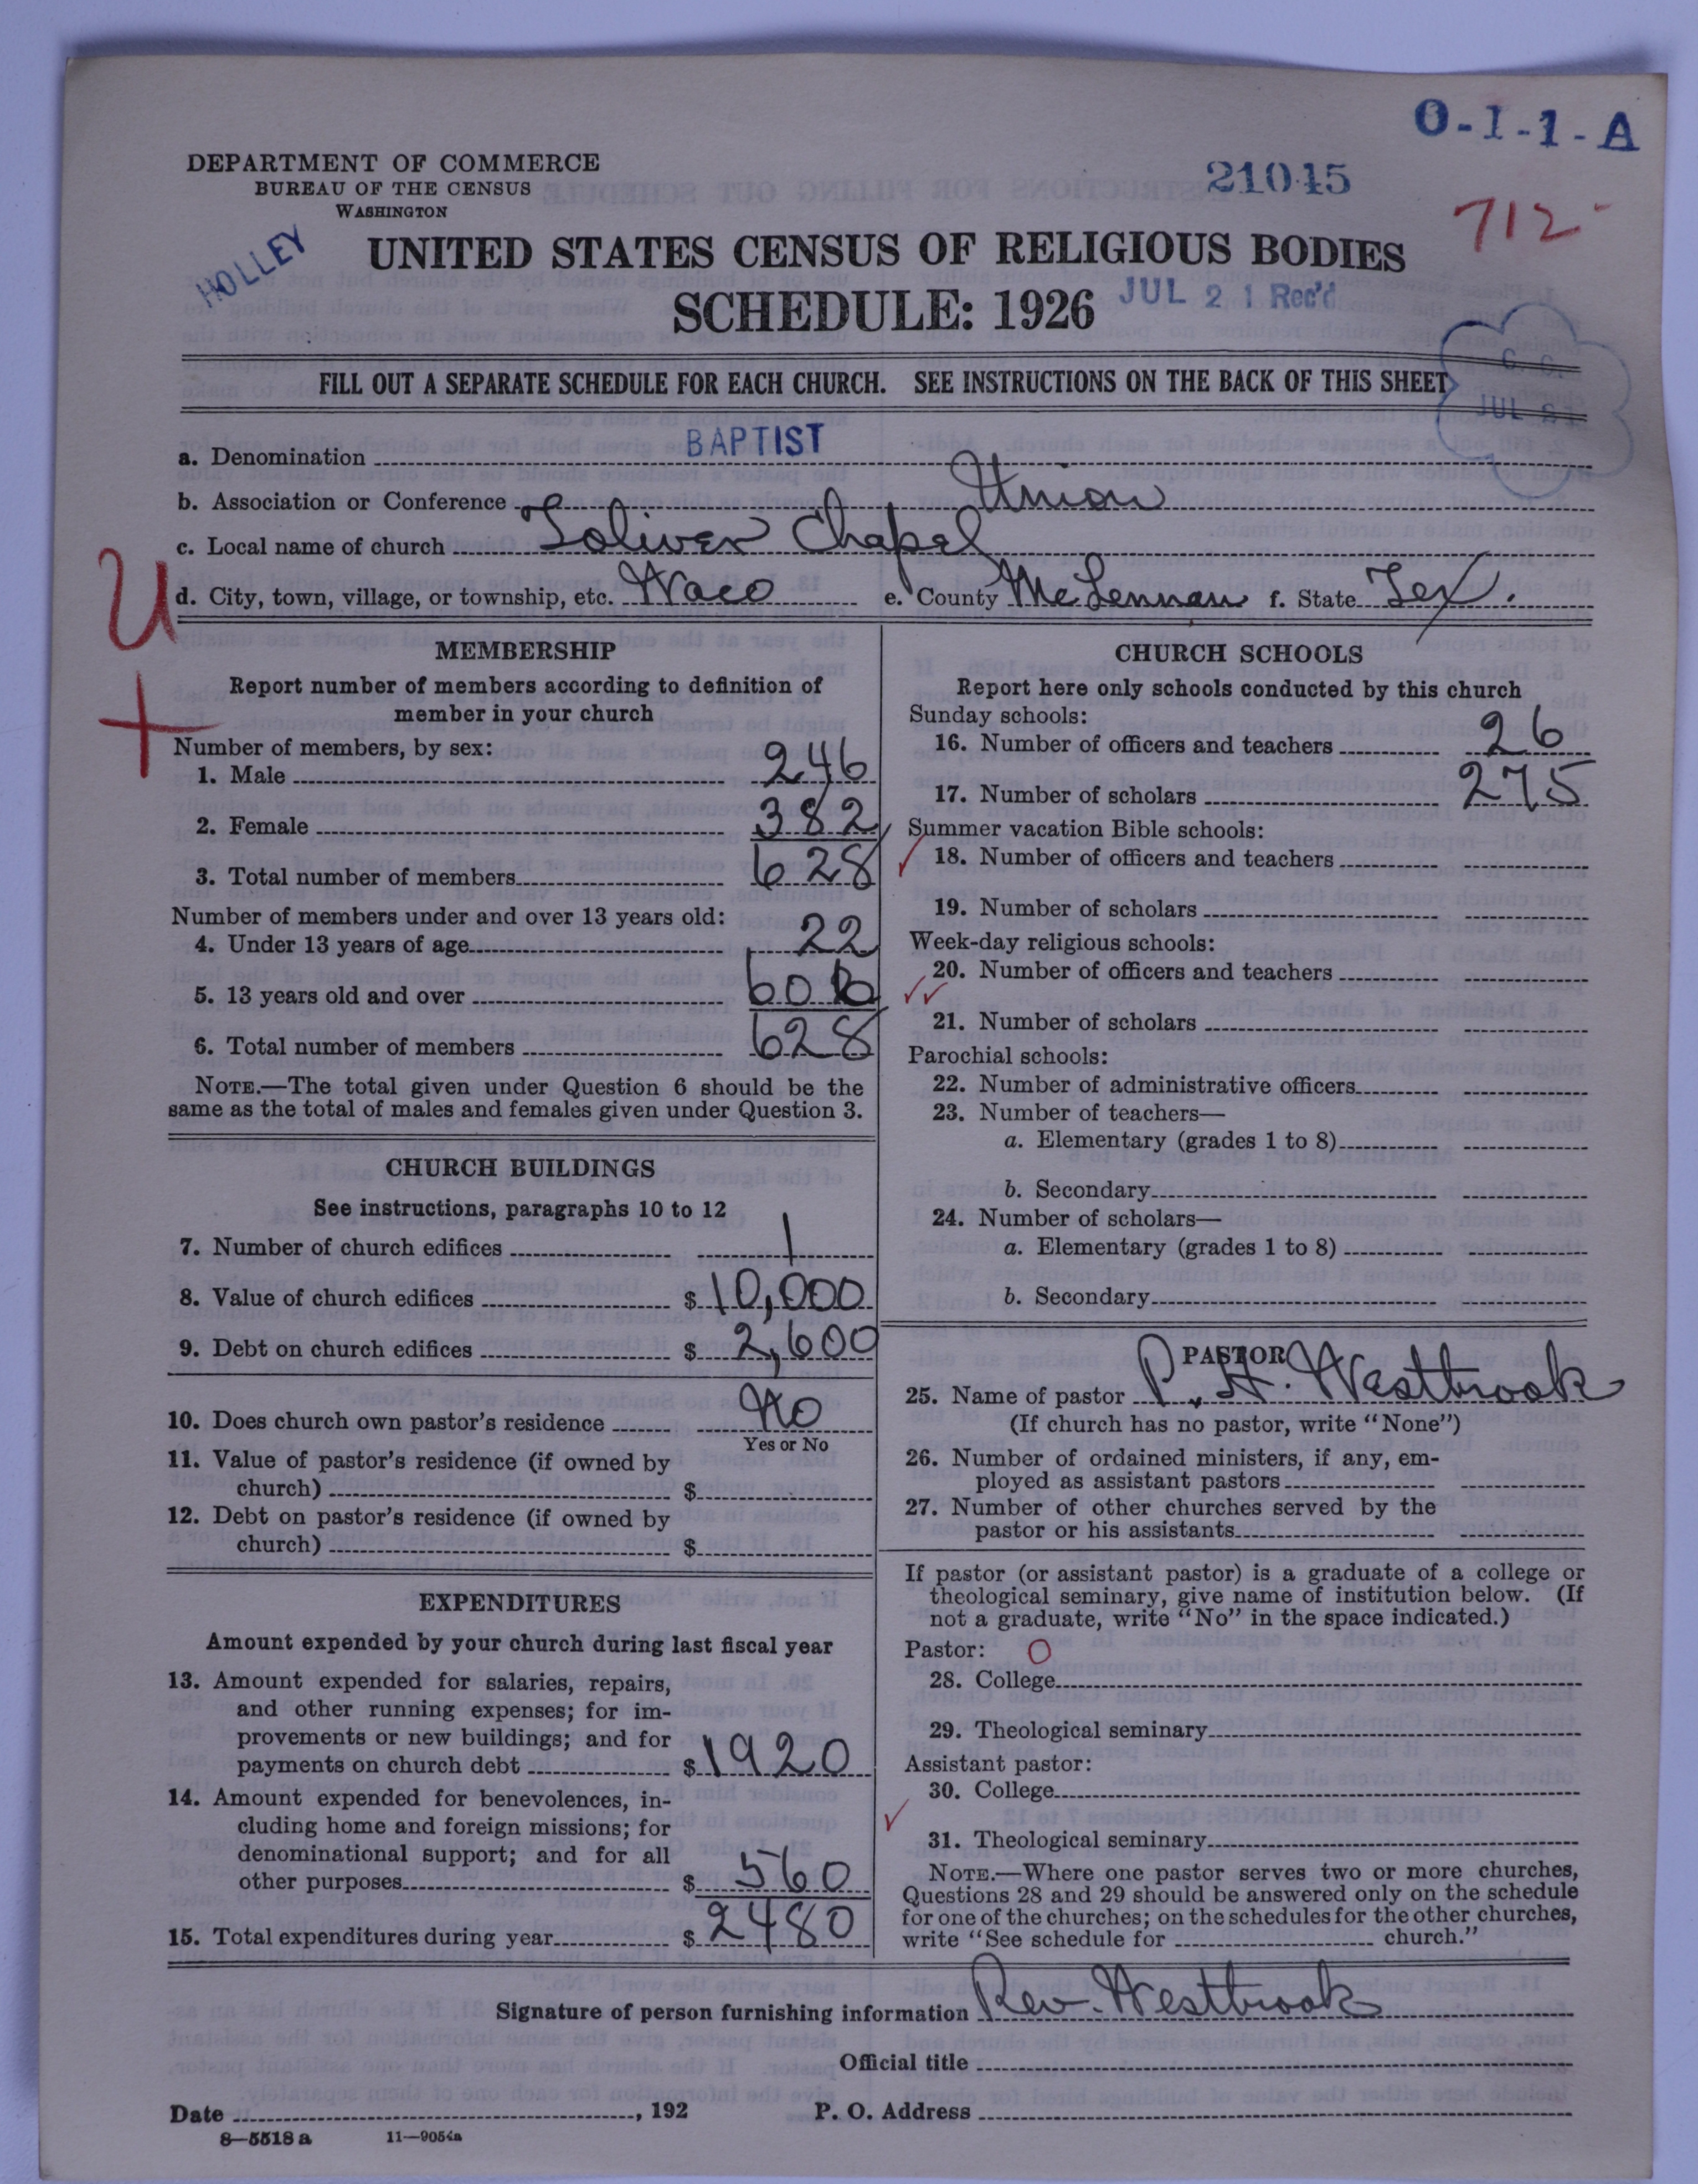 O-I-1-A
DEPARTMENT OF COMMERCE
BUREAU OF THE CENSUS
WASHINGTON
21045
712
HOLLEY
UNITED STATES CENSUS OF RELIGIOUS BODIES
SCHEDULE: 1926
JUL 21 Rec'd
FILL OUT A SEPARATE SCHEDULE FOR EACH CHURCH. SEE INSTRUCTIONS ON THE BACK OF THIS SHEET
JUL 21
a. Denomination BAPTIST
b. Association or Conference Union
c. Local name of church Toliver Chapel
d. City, town, village, or township, etc. Waco e. County McLennan f. State Tex.
U
+
MEMBERSHIP
Report number of members according to definition of
member in your church
Number of members, by sex:
1. Male 246
2. Female 382
3. Total number of members 628
Number of members under and over 13 years old:
4. Under 13 years of age 22
5. 13 years old and over 606
6. Total number of members 628
NOTE.—The total given under Question 6 should be the
same as the total of males and females given under Question 3.
CHURCH BUILDINGS
See instructions, paragraphs 10 to 12
7. Number of church edifices 1
8. Value of church edifices $ 10,000
9. Debt on church edifices $ 2,600
10. Does church own pastor's residence No
Yes or No
11. Value of pastor's residence (if owned by
church) $
12. Debt on pastor's residence (if owned by
church) $
EXPENDITURES
Amount expended by your church during last fiscal year
13. Amount expended for salaries, repairs,
and other running expenses; for im-
provements or new buildings; and for
payments on church debt $ 1920
14. Amount expended for benevolences, in-
cluding home and foreign missions; for
denominational support; and for all
other purposes $ 560
15. Total expenditures during year $ 2480
CHURCH SCHOOLS
Report here only schools conducted by this church
Sunday schools:
16. Number of officers and teachers 26
17. Number of scholars 275
Summer vacation Bible schools:
18. Number of officers and teachers
19. Number of scholars
Week-day religious schools:
20. Number of officers and teachers
21. Number of scholars
Parochial schools:
22. Number of administrative officers
23. Number of teachers—
a. Elementary (grades 1 to 8)
b. Secondary
24. Number of scholars—
a. Elementary (grades 1 to 8)
b. Secondary
PASTOR
25. Name of pastor P. H. Westbrook
(If church has no pastor, write "None")
26. Number of ordained ministers, if any, em-
ployed as assistant pastors
27. Number of other churches served by the
pastor or his assistants
If pastor (or assistant pastor) is a graduate of a college or
theological seminary, give name of institution below. (If
not a graduate, write "No" in the space indicated.)
Pastor: O
28. College
29. Theological seminary
Assistant pastor:
30. College
31. Theological seminary
NOTE.—Where one pastor serves two or more churches,
Questions 28 and 29 should be answered only on the schedule
for one of the churches; on the schedules for the other churches,
write "See schedule for church."
Signature of person furnishing information Rev. Westbrook
Official title
Date , 192 P. O. Address
8—5518 a 11—9054a